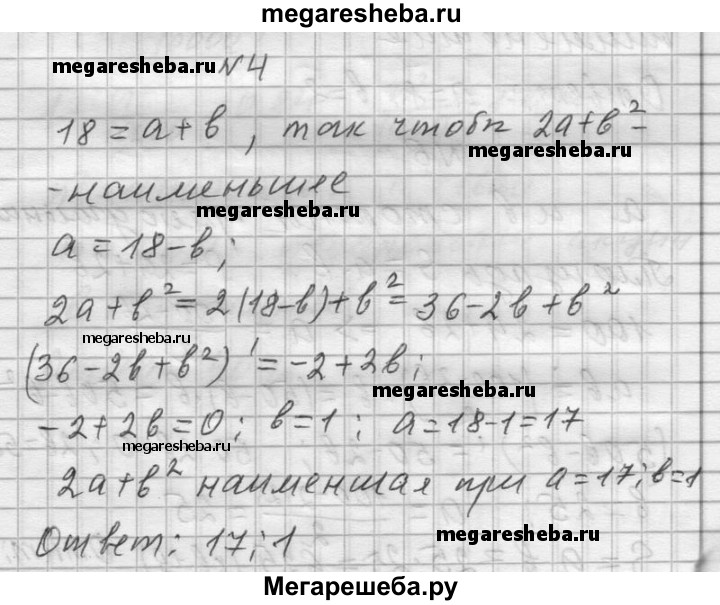 megaresheba.ru
megaresheba.ru №4
18 = a + b, так чтобы 2a+b² -
megaresheba.ru
- наименьшее
megaresheba.ru
a = 18 - b;
2a + b² = 2(18-b) + b² = 36 - 2b + b²
megaresheba.ru
(36 - 2b + b²)' = -2 + 2b;
megaresheba.ru
-2 + 2b = 0; b = 1; a = 18-1 = 17
megaresheba.ru
2a+b² наименшая при a = 17; b = 1
Ответ: 17; 1
megaresheba.ru
Мегарешеба.ру